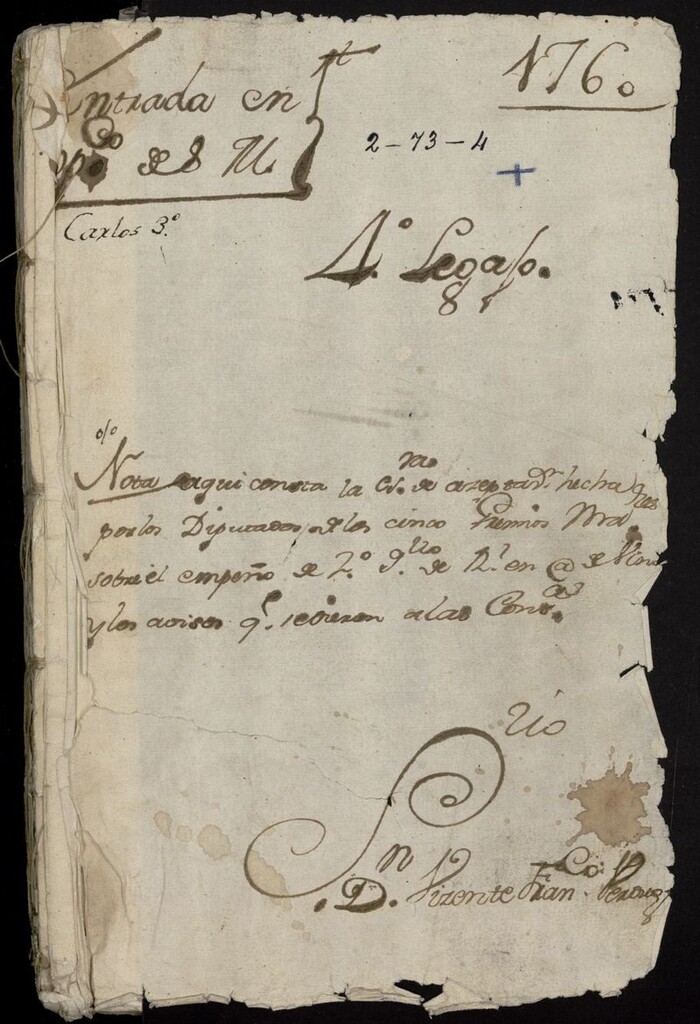 Entrada en
pp.co de S M.
1760
2-73-4
+
Carlos 3.º
4.º Legajo.
Nota aqui consta la de azeptad.n hecha
por los Diputados de los cinco Gremios
sobre el empeño de 2.º de en @ de
y los avisos q.e se dieron a las
S.rio
S.n D.n Vizente Fran.co